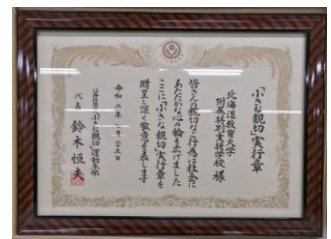 「小さな親切」実行章
北海道教育大学
附属特別支援学校 様
皆さんの親切な行為は社会に
あたたかな心の輪を広げました
ここに「小さな親切」実行章を
贈呈し深く敬意を表します
令和 年 月 日
「小さな親切」運動本部
代表 鈴木恒夫